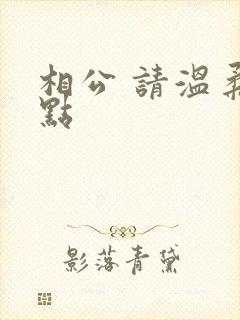 相公 請溫柔
點
影落青黛